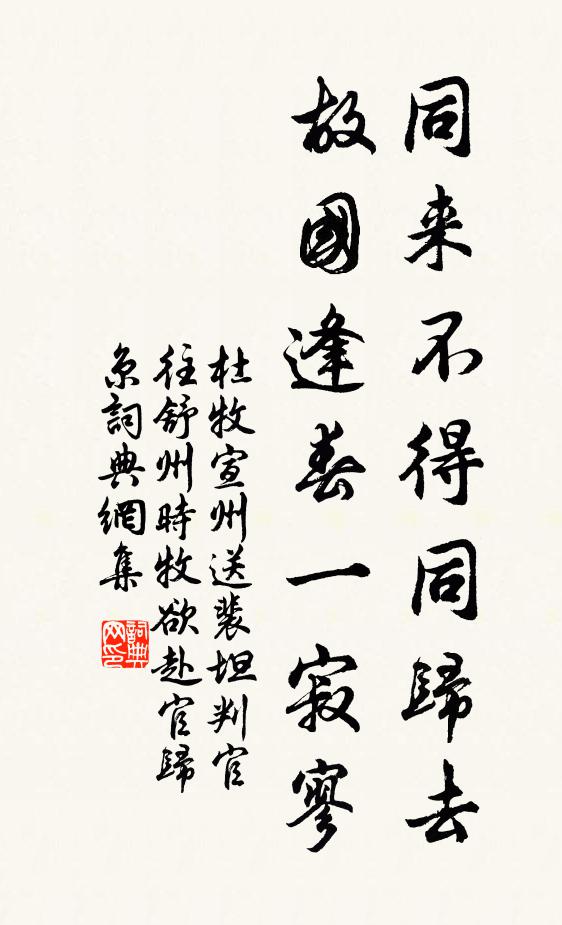 同来不得同歸去
故國逢春一寂寥
杜牧宣州送裴坦判官
往舒州時牧欲赴官歸
京詞典網集
詞典网印